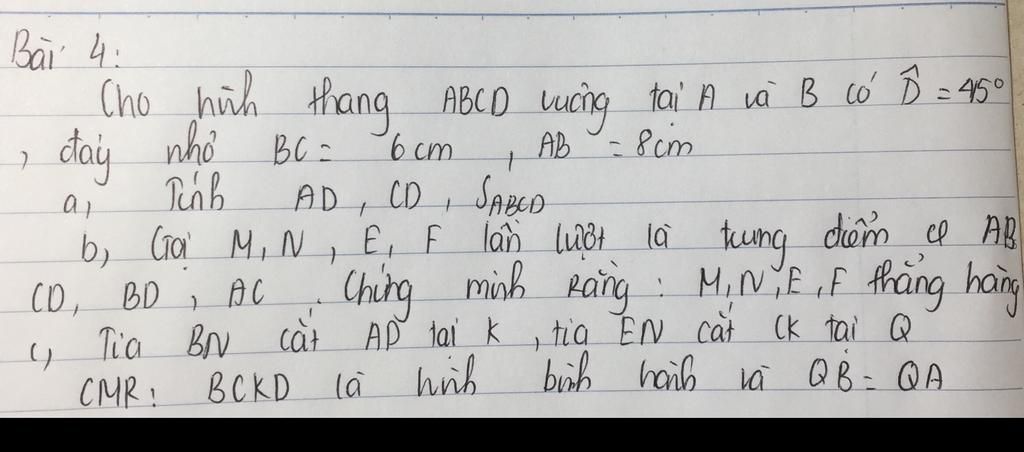 Bài 4:
Cho hình thang ABCD vuông tại A và B có D̂ = 45°
, đáy nhỏ BC = 6cm , AB = 8cm
a, Tính AD , CD , SABCD
b, Gọi M, N , E, F lần lượt là trung điểm of AB
CD, BD , AC . Chứng minh Rằng : M, N, E, F thẳng hàng
c, Tia BN cắt AD tại K , tia EN cắt CK tại Q
CMR: BCKD là hình bình hành và QB = QA